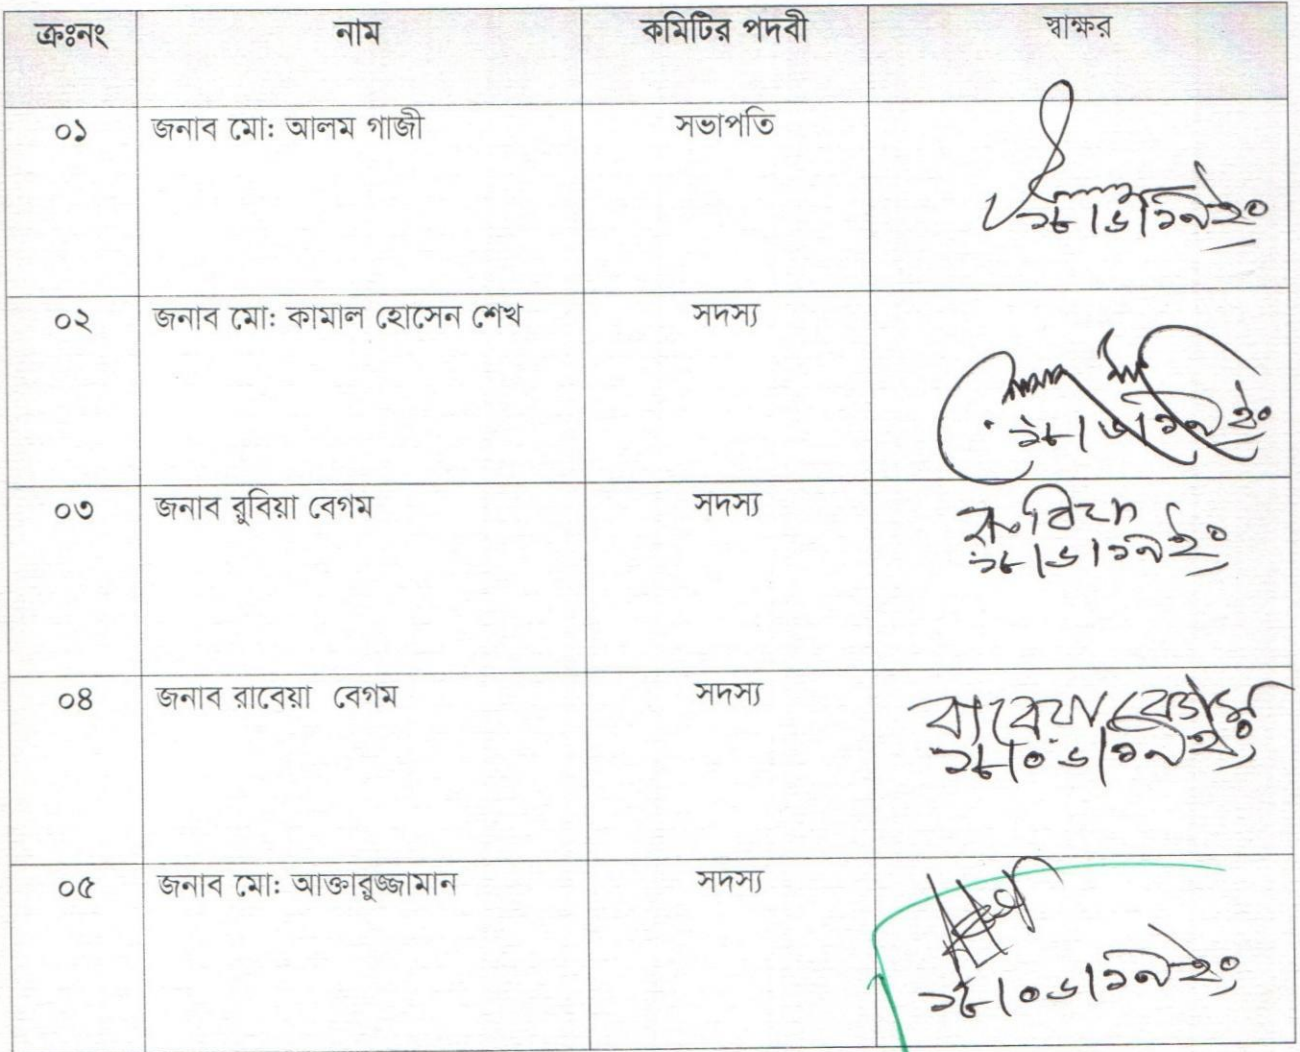 ক্রঃনং নাম কমিটির পদবী স্বাক্ষর
০১ জনাব মো: আলম গাজী সভাপতি
১৮/৬/১৯ইং
০২ জনাব মো: কামাল হোসেন শেখ সদস্য
১৮/৬/১৯ইং
০৩ জনাব রুবিয়া বেগম সদস্য রুবিয়া
১৮/৬/১৯ইং
০৪ জনাব রাবেয়া বেগম সদস্য রাবেয়া বেগম
১৮/০৬/১৯ইং
০৫ জনাব মো: আক্তারুজ্জামান সদস্য
১৮/০৬/১৯ইং